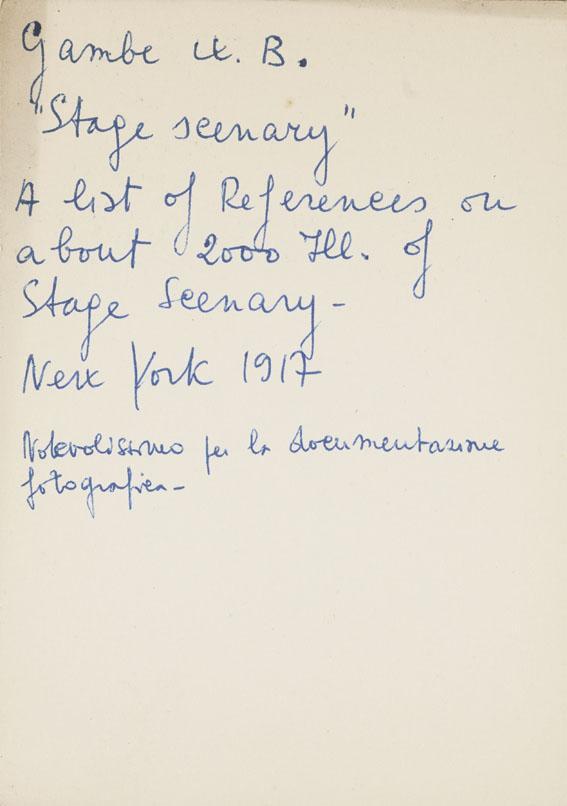 Gambe W. B.
"Stage scenary"
A list of References on
about 2000 Ill. of
Stage Scenary -
New York 1917
Notevolissimo per la documentazione
fotografica -